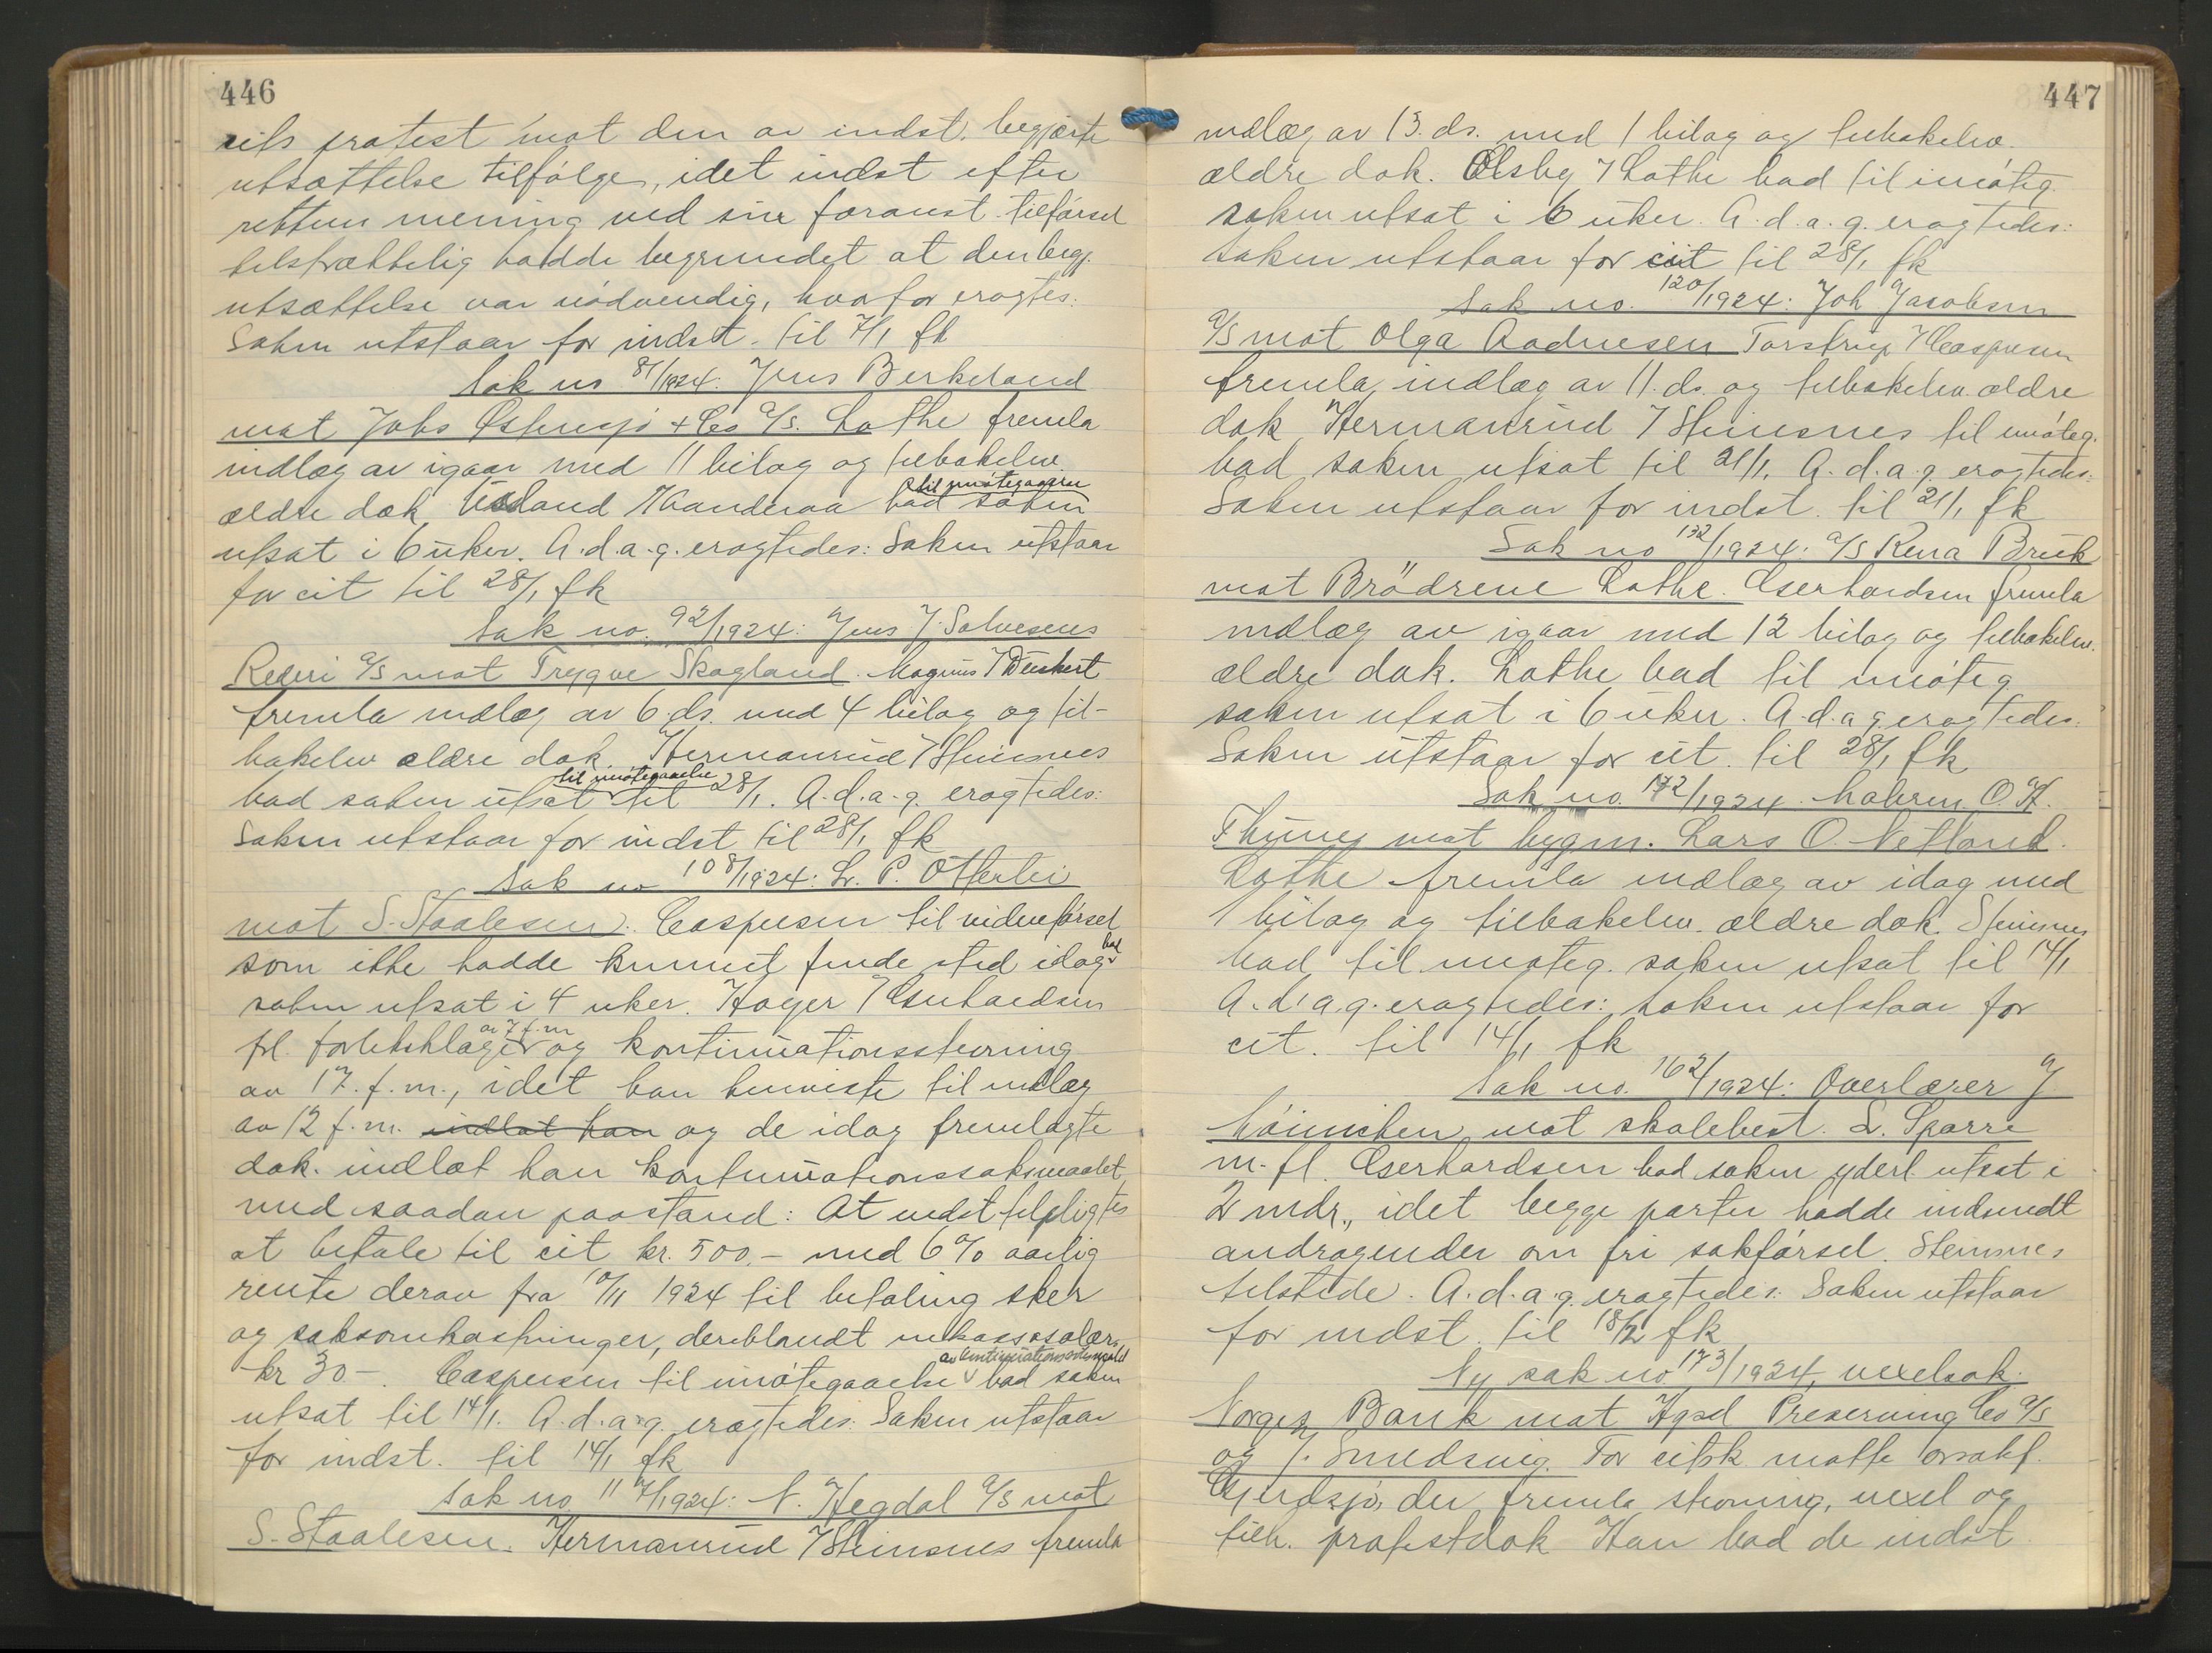 446
cits protest mot den av indst. begjærte
utsættelse tilfølge, idet indst efter
rettens mening ved sin foranst. tilførsel
tilstrækkelig hadde begrundet at den begj.
utsættelse var nödvendig, hvorfor eragtes:
Saken utstaar for indst. til 7/1 fk
Sak no 87/1924. Jens Berkeland
mot Johs Østensjö + Co A/S. Lothe fremla
indlæg av igaar med 11 bilag og tilbakelev.
ældre dok. Usland / Kanderaa bad til imötegaaelse saken
utsat i 6 uker. A.d.a.g. eragtedes: Saken utstaar
for cit til 28/1 fk
Sak no. 92/1924: Jens J. Salvesens
Rederi A/S mot Trygve Skogland. Magnus / Weickert
fremla indlæg av 6 ds. med 4 bilag og til-
bakelev ældre dok. Hermanrud / Steinsnes
bad saken utsat til imötegaaelse til 28/1. A.d.a.g. eragtedes:
Saken utstaar for indst til 28/1 fk
Sak no 108/1924: L. P. Otterlei
mot S. Staalesen. Caspersen til vidneførsel
som ikke hadde kunnet finde sted idag bad
saken utsat i 4 uker. Høyer / Eserhardsen
frl. forliksklage av 7 f.m og kontinuationsstevning
av 17. f.m., idet han henviste til indlæg
av 12 f.m. indlot han og de idag fremlagte
dok. indlot han kontinuationssaksmaalet
med saadan paastand: At indst tilpligtes
at betale til cit kr. 500.- med 6% aarlig
rente derav fra 10/11 1924 til betaling sker
og saksomkostninger, deriblandt inkassosalær
kr 30 -. Caspersen til imötegaaelse av kontinuationssaksmaalet bad saken
utsat til 14/1. A.d.a.g. eragtedes: Saken utstaar
for indst. til 14/1 fk
Sak no 117/1924: N. Hegdal A/S mot
S. Staalesen. Hermanrud / Steinsnes fremla
447
indlæg av 13. ds. med 1 bilag og tilbakelev.
ældre dok. Olsby / Lothe bad til imöteg.
saken utsat i 6 uker. A.d.a.g. eragtedes:
Saken utstaar for cit til 28/1 fk
Sak no. 120/1924: Joh Jacobsen
A/S mot Olga Aadnesen Torstrup / Caspersen
fremla indlæg av 11. ds. og tilbakelev. ældre
dok Hermanrud / Steinsnes til imöteg.
bad saken utsat til 21/1. A.d.a.g. eragtedes:
Saken utstaar for indst. til 21/1 fk
Sak no 132/1924. A/S Rena Bruk
mot Brödrene Lothe. Eserhardsen fremla
indlæg av igaar med 12 bilag og tilbakelev.
ældre dok. Lothe bad til imöteg
saken utsat i 6 uker. A.d.a.g. eragtedes:
Saken utstaar for cit. til 28/1 fk
Sak no. 172/1924. Malerm. O. H.
Thunes mot bygm. Lars O. Netland.
Lothe fremla indlæg av idag med
1 bilag og tilbakelev. ældre dok. Steinsnes
bad til imöteg. saken utsat til 14/1
A.d.a.g. eragtedes: Saken utstaar for
cit. til 14/1 fk
Sak no. 162/1924: Overlærer J.
mot skolebest. L. Sparre
m. fl. Eserhardsen bad saken yderl. utsat i
2 mdr., idet begge parter hadde indsendt
andragender om fri sakførsel. Steinsnes
tilstede. A.d.a.g. eragtedes: Saken utstaar
for indst. til 18/2 fk
Ny sak no 173/1924, vexelsak:
Norges Bank mot Hgsd Preserving Co A/S
og J. Smedsvig. For citsk. møtte orsakf.
Gjerdsjö, der fremla stevning, vexel og
tilh. protestdok Han bad de indst